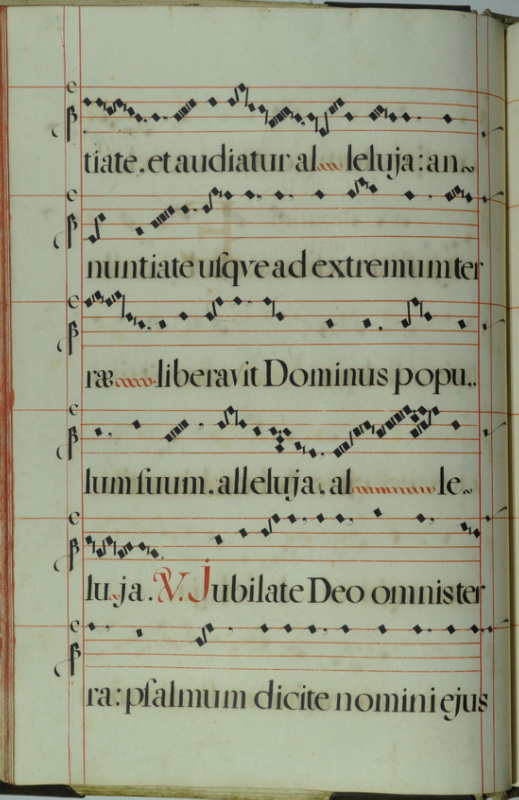 tiate, et audiatur al leluja: an~
nuntiate uſqve ad extremum ter
ræ liberavit Dominus popu..
lum ſuum, alleluja, al le~
lu ja. V. Jubilate Deo omnis ter
ra: pſalmum dicite nomini ejus